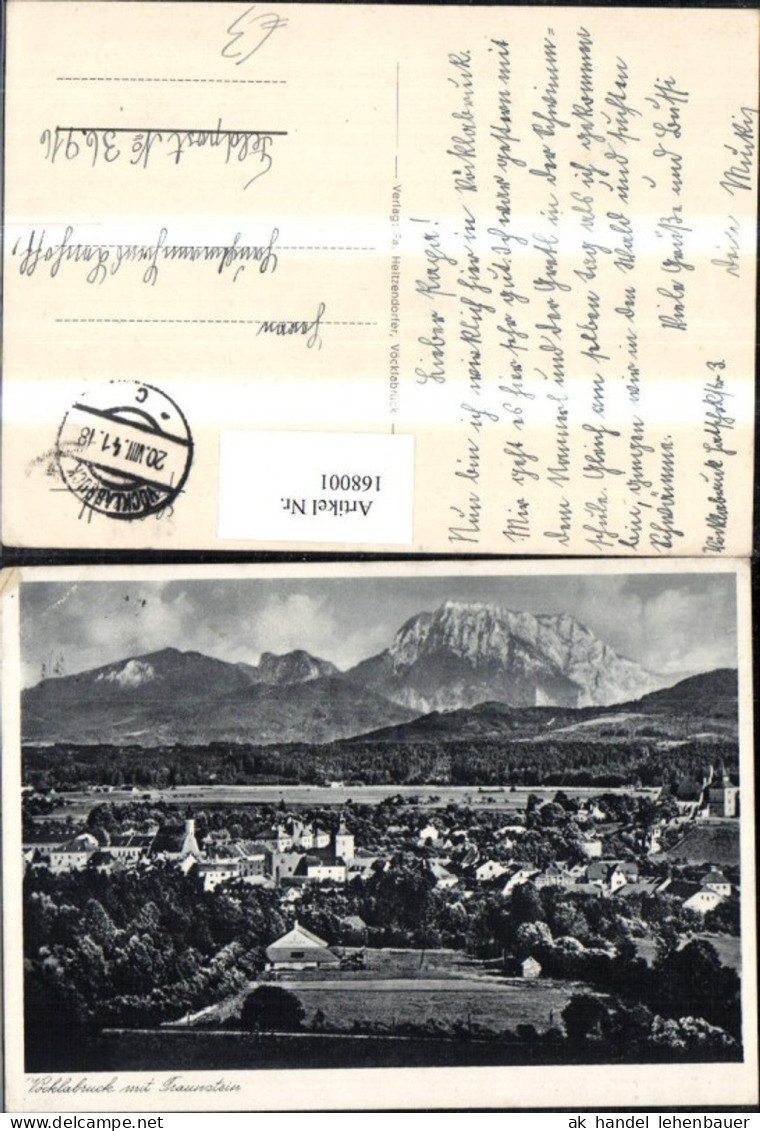 Lieber Papa!
Nun bin ich wirklich hier in Vöcklabruck.
Mir geht es hier sehr gut. Ich war gestern mit
dem Nannerl und der Gretl in der Schwimm=
schule. Gleich am selben Tag als ich gekommen
bin, gingen wir in den Wald und suchten
Schwämme.
Viele Grüße und Bussi
Deine
Vöcklabruck
3
Verlag: Fa. Heitzendorfer, Vöcklabruck
Feldpost
VÖCKLABRUCK
20.VIII.41.18
C
Herrn
Hauptmann
Feldpost No 36.916
£3
Artikel Nr.
168001
Vöcklabruck mit Traunstein
ak handel lehenbauer